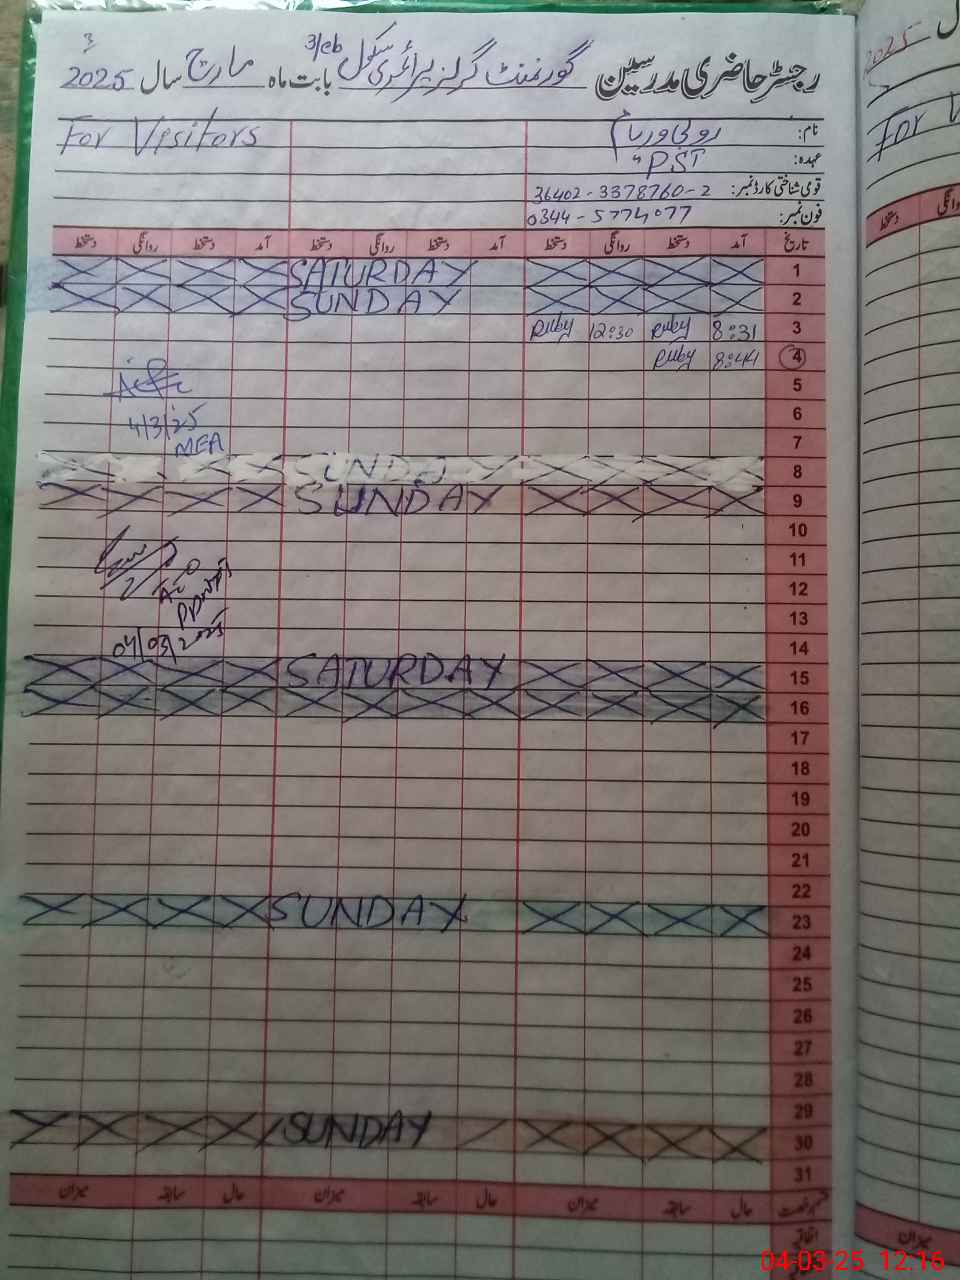 رجسٹر حاضری مدرسین گورنمنٹ گرلز پرائمری سکول 3/eb بابت ماہ مارچ سال 2025
نام: روبی وریام For Visitors
عہدہ: PST
قومی شناختی کارڈ نمبر: 36402-3378760-2
فون نمبر: 0344-5774077
تاریخ آمد دستخط روانگی دستخط آمد دستخط روانگی دستخط آمد دستخط روانگی دستخط
1 SATURDAY
2 SUNDAY
3 8:31 Ruby 12:30 Ruby
4 8:44 Ruby
5
6 4/3/25
7 MEA
8 SUNDAY
9 SUNDAY
10
11
12
13
14 04/03/2025
15 SATURDAY
16
17
18
19
20
21
22
23 SUNDAY
24
25
26
27
28
29
30 SUNDAY
31
حال سابقہ میزان حال سابقہ میزان حال سابقہ میزان
اتفاقیہ
2025
For V
دستخط
میزان
04-03-25 12:16